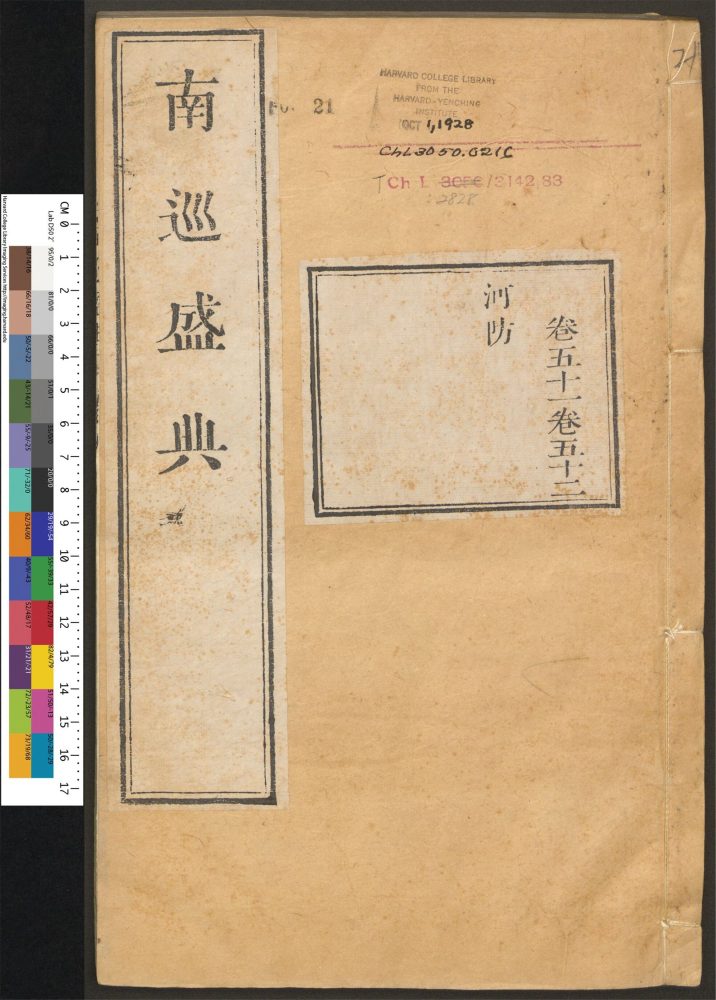 南巡盛典
21
HARVARD COLLEGE LIBRARY
FROM THE
HARVARD-YENCHING
INSTITUTE
OCT 1, 1928
ChL3050.021C
T Ch L 3050/3142.83
:2828
卷五十一卷五十二
河防
CM 0 1 2 3 4 5 6 7 8 9 10 11 12 13 14 15 16 17
Harvard College Library Imaging Services